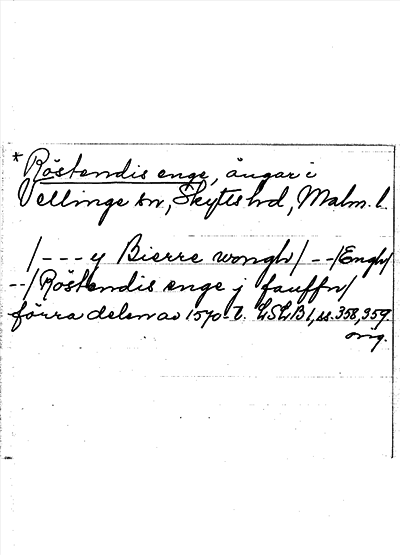 * Röstendis enge, ängar i
Vellinge sn, Skytts hd, Malm. l.
/--- y Bierre wongh/ --/Engh/
--/Röstendis enge j fauffn/
förra delen av 1570-t. LSLB 1, ss. 358, 359
orig.